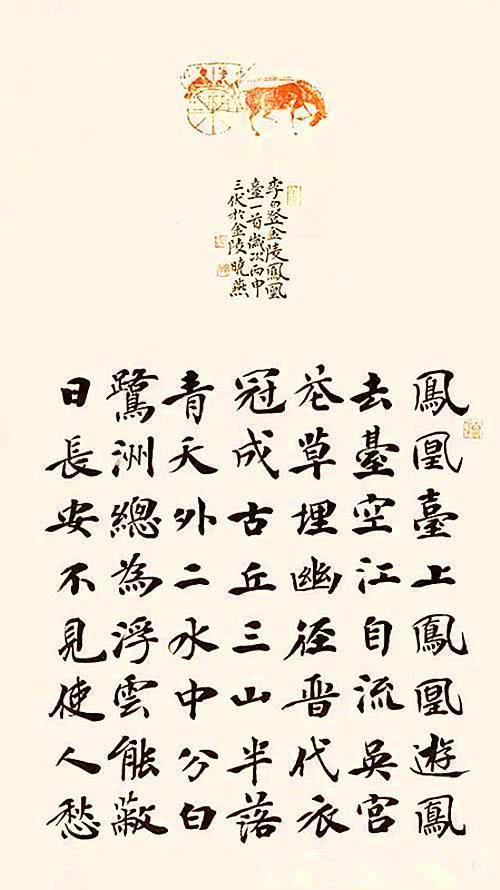 李白登金陵鳳凰
臺一首歲次丙申
三伏於金陵曉燕
鳳凰臺上鳳凰遊鳳
去臺空江自流吳宮
花草埋幽徑晋代衣
冠成古丘三山半落
青天外二水中分白
鷺洲總為浮雲能蔽
日長安不見使人愁